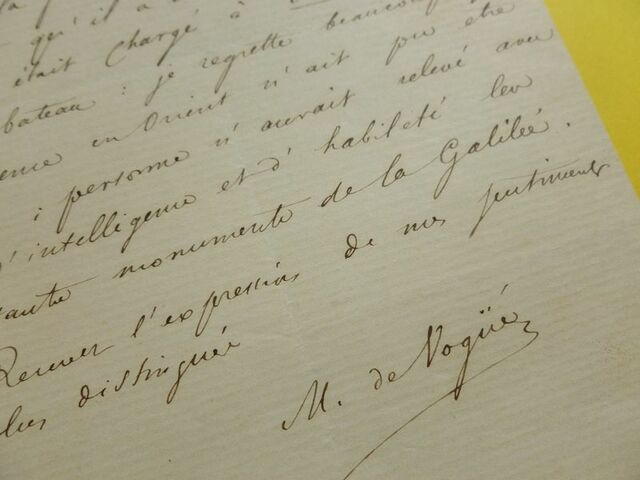 qu'il a
était chargé à
bateau : je regrette beaucoup
en Orient n'ait pu être
; personne n'aurait relevé avec
d'intelligence et d'habileté les
monuments de la Galilée.
Recevez l'expression de mes sentiments
plus distingués
M. de Vogüé